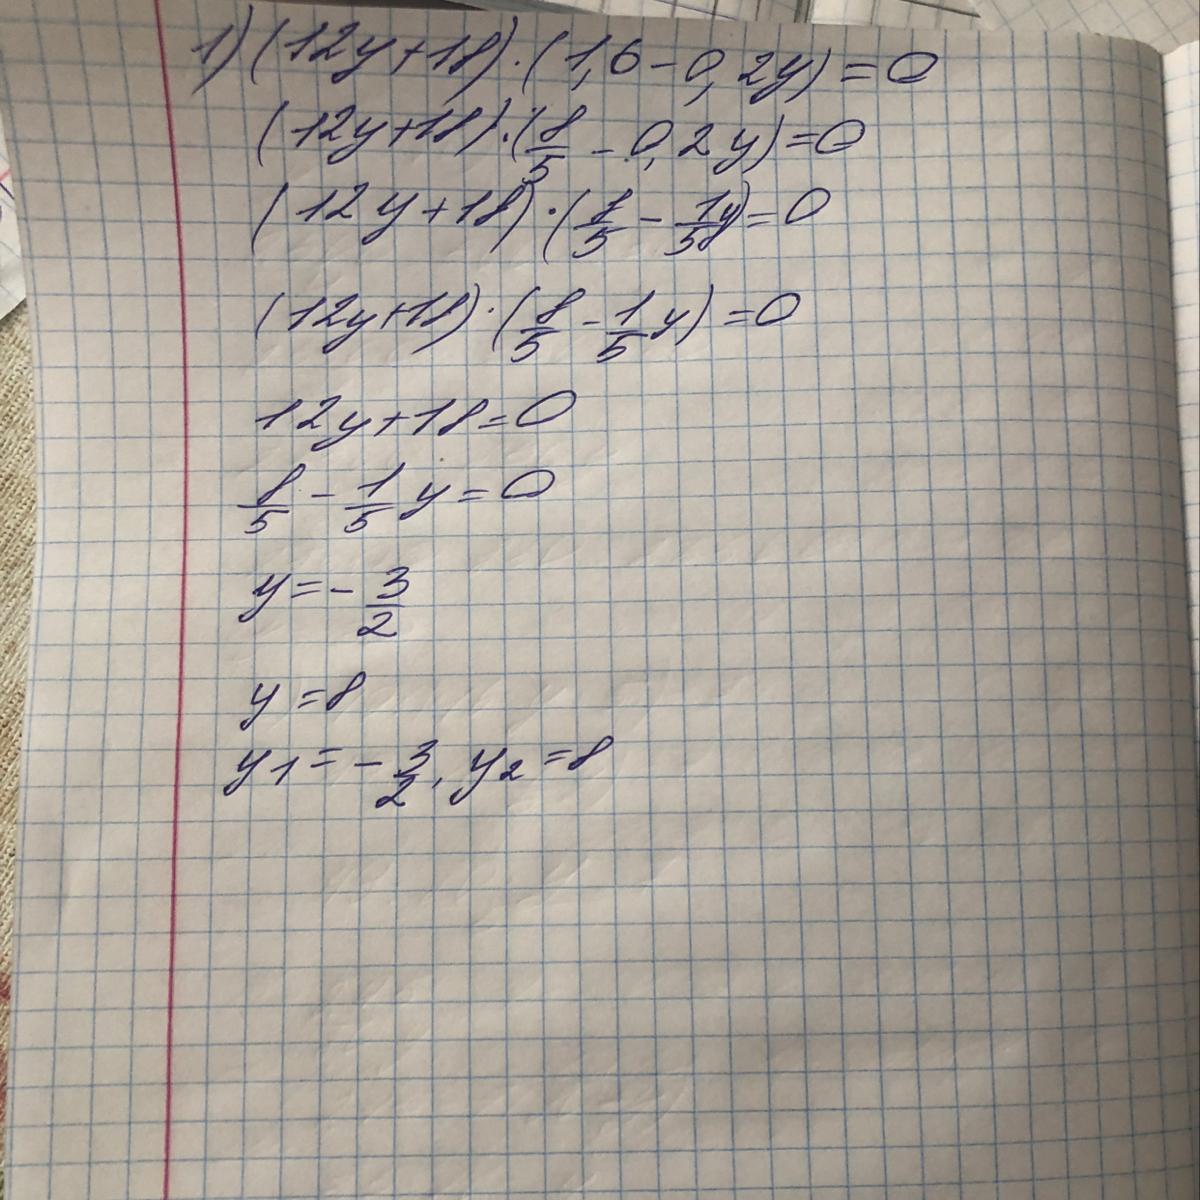 1) (12y+18)·(1,6-0,2y)=0
(12y+18)·(8/5-0,2y)=0
(12y+18)·(8/5-1/5y)=0
(12y+18)·(8/5-1/5y)=0
12y+18=0
8/5-1/5y=0
y=-3/2
y=8
y₁=-3/2, y₂=8